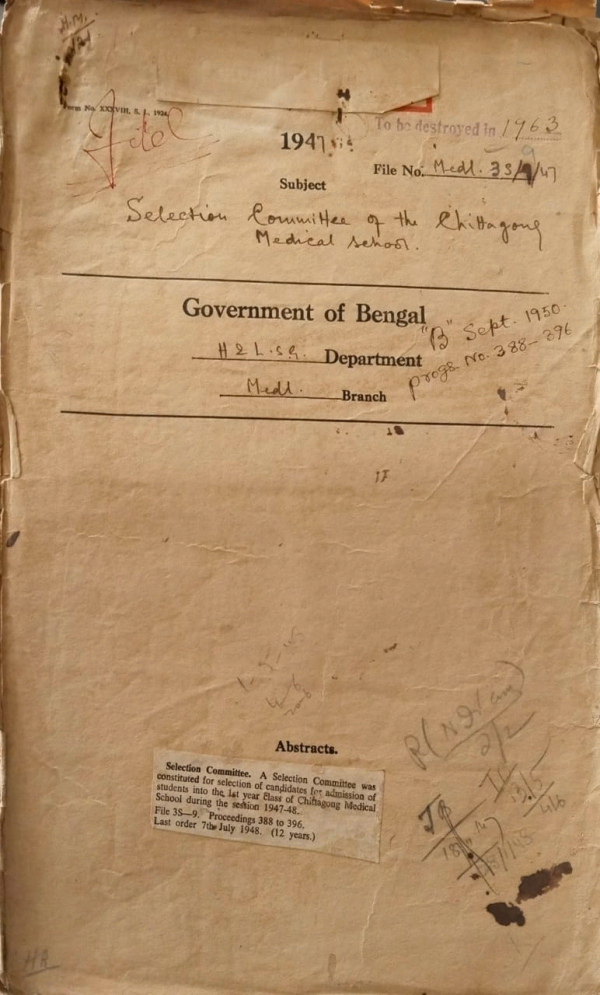 H.M.
Form No. XXXVIII, S. I., 1924
Filed
To be destroyed in 1963
1947
File No. Medl. 3S/9/47
Subject
Selection Committee of the Chittagong
Medical school.
Government of Bengal
"B" Sept. 1950.
H & L.S.G. Department
Progs No. 388-396
Medl. Branch
Abstracts.
Selection Committee. A Selection Committee was
constituted for selection of candidates for admission of
students into the 1st year class of Chittagong Medical
School during the session 1947-48.
File 3S—9. Proceedings 388 to 396.
Last order 7th July 1948. (12 years.)